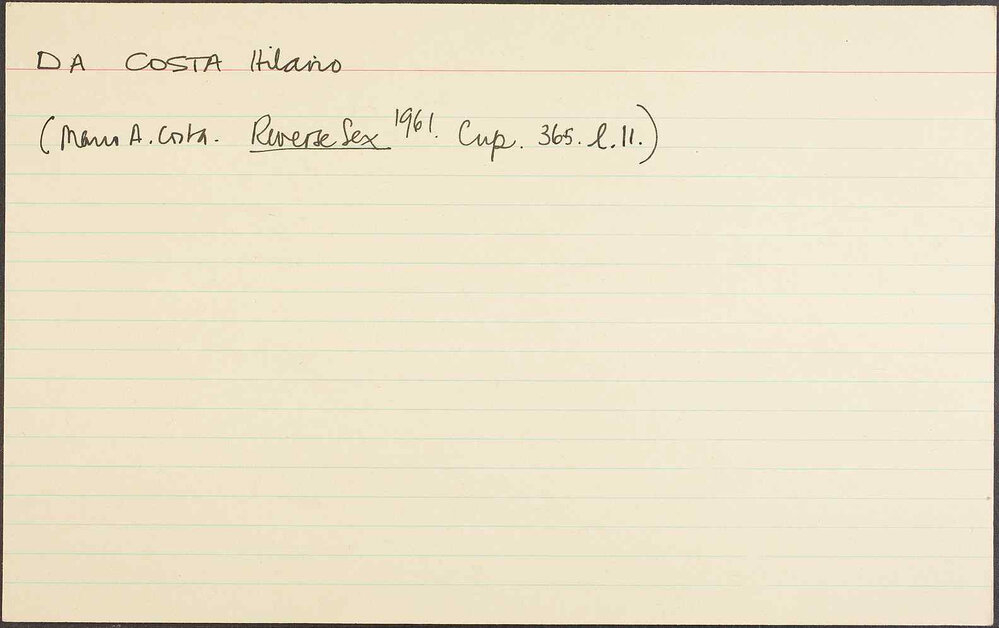 DA COSTA Hilario
(Mario A. Costa. Reverse Sex 1961. Cup. 365. l. 11.)